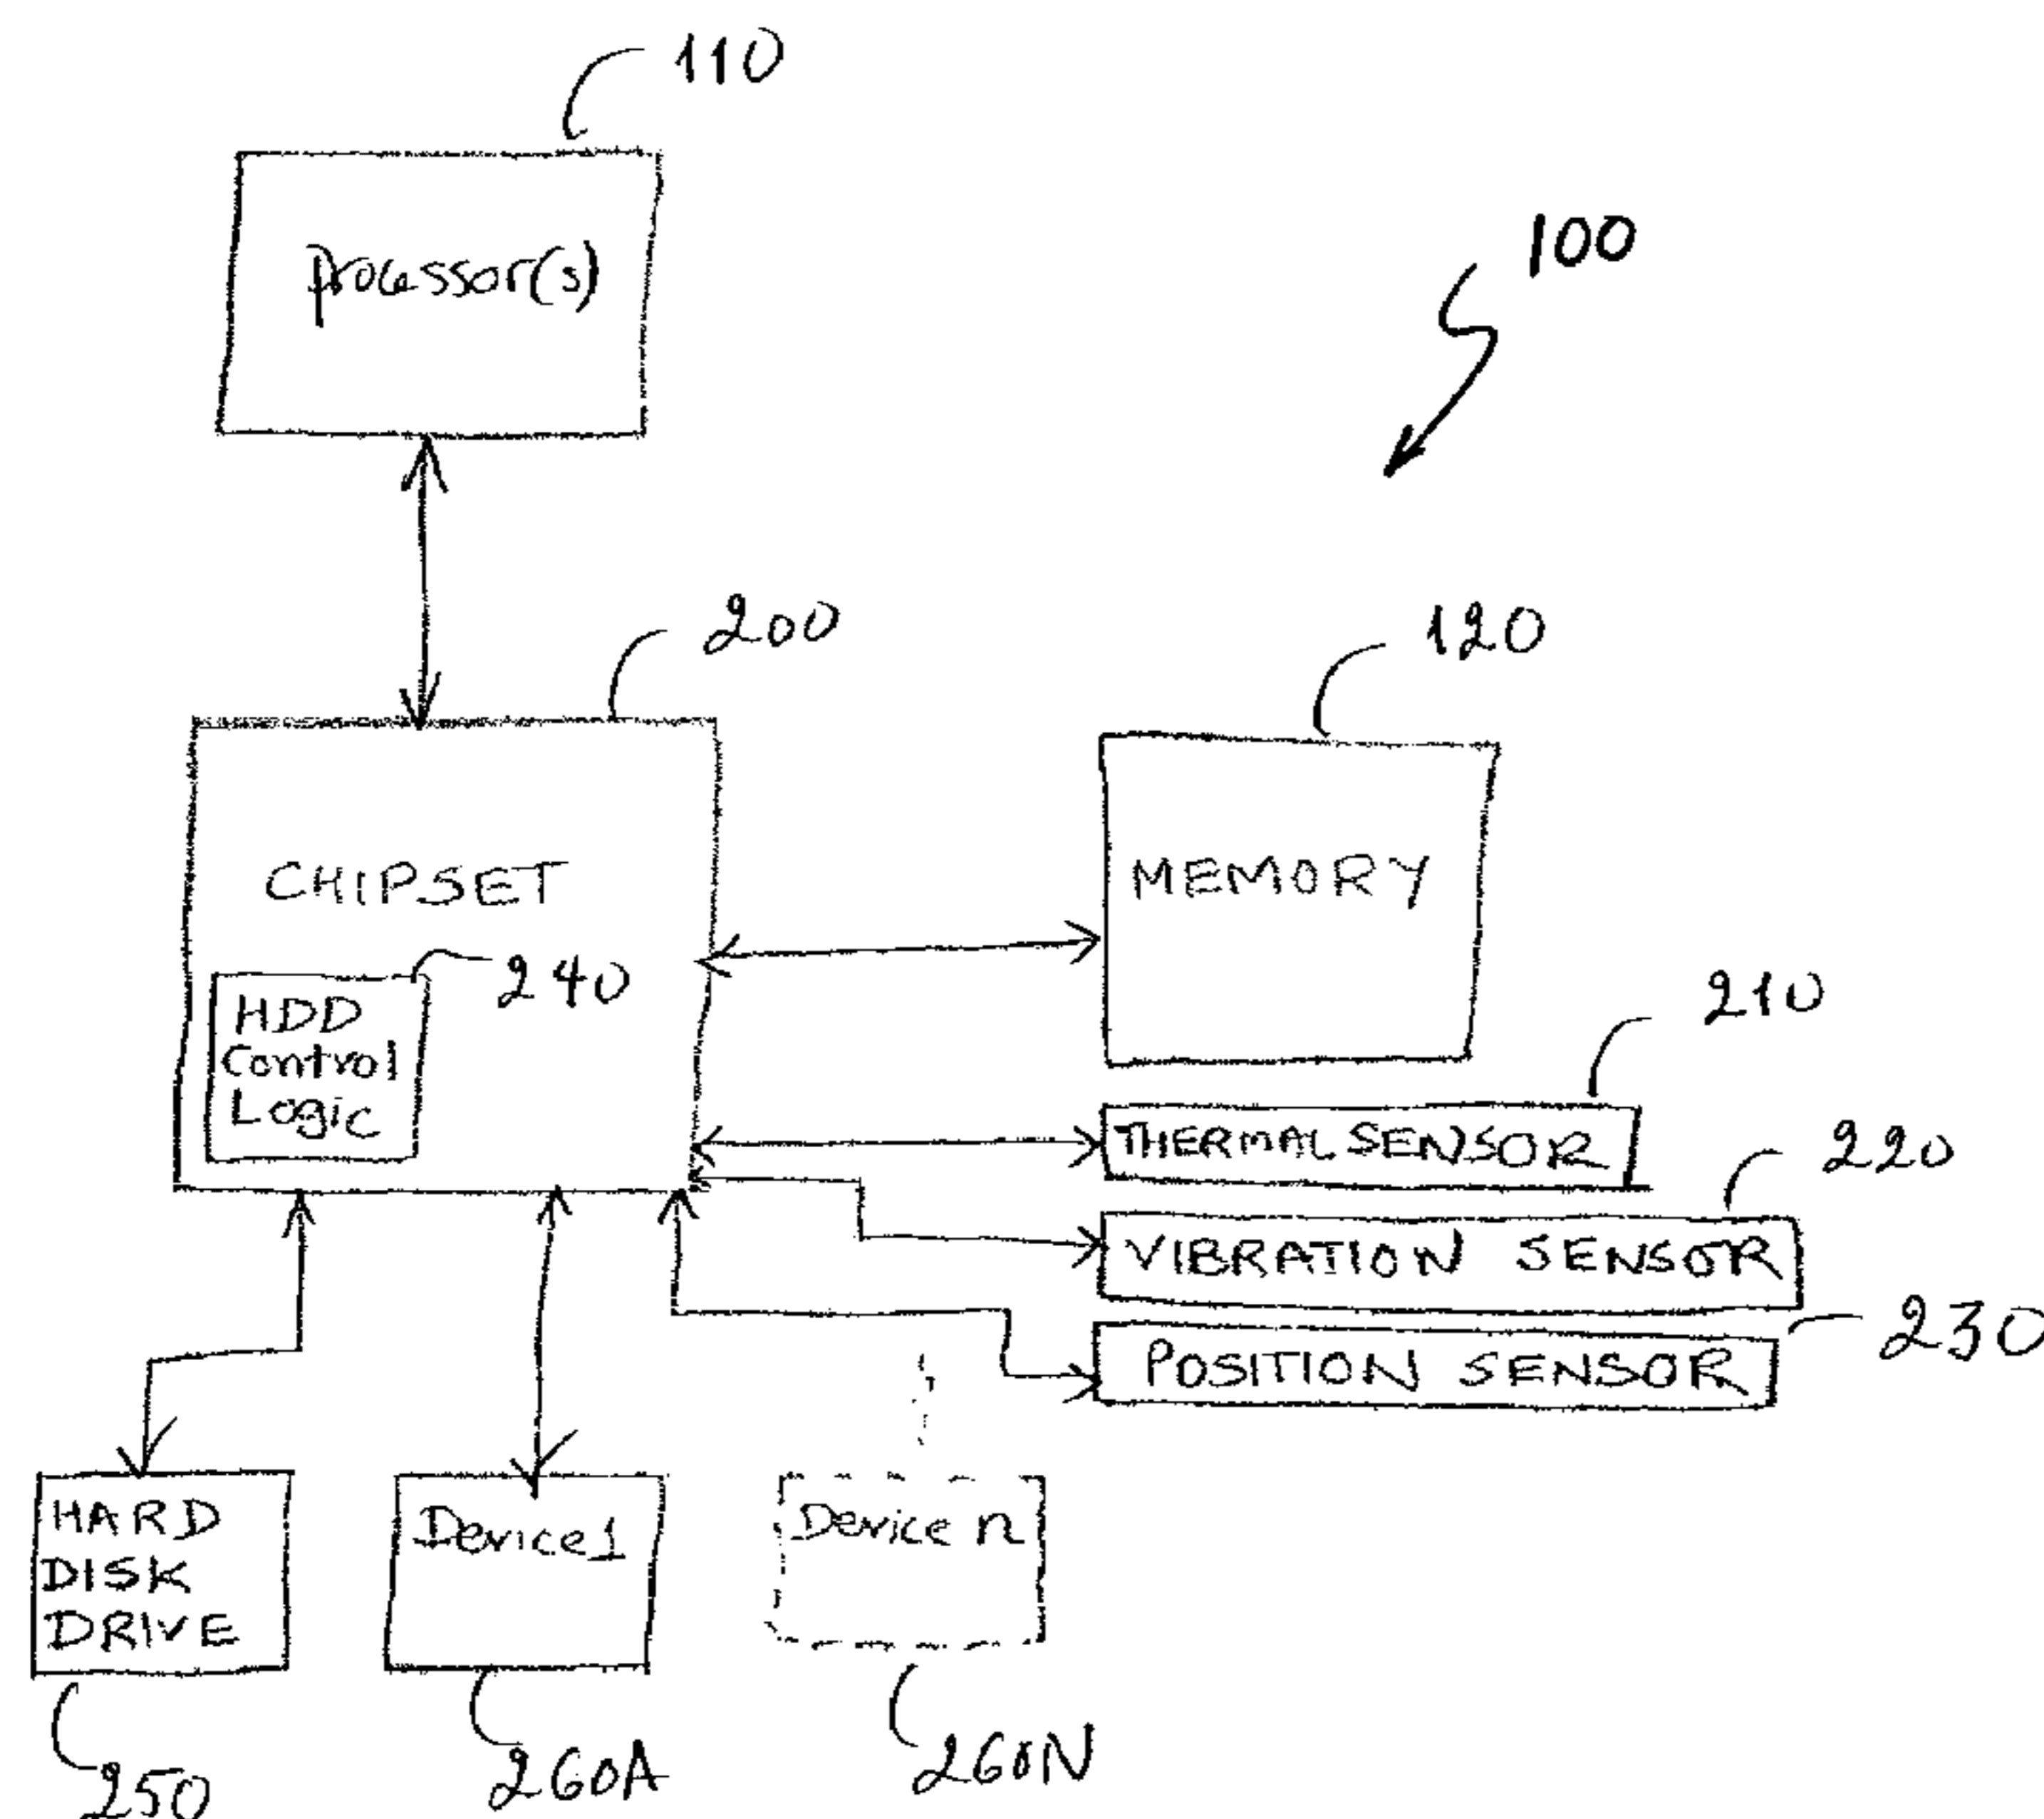 110
processor(s)
100
200
120
CHIPSET
MEMORY
240
HDD
Control
Logic
210
THERMAL SENSOR
220
VIBRATION SENSOR
230
POSITION SENSOR
HARD
DISK
DRIVE
Device 1
Device n
250
260A
260N